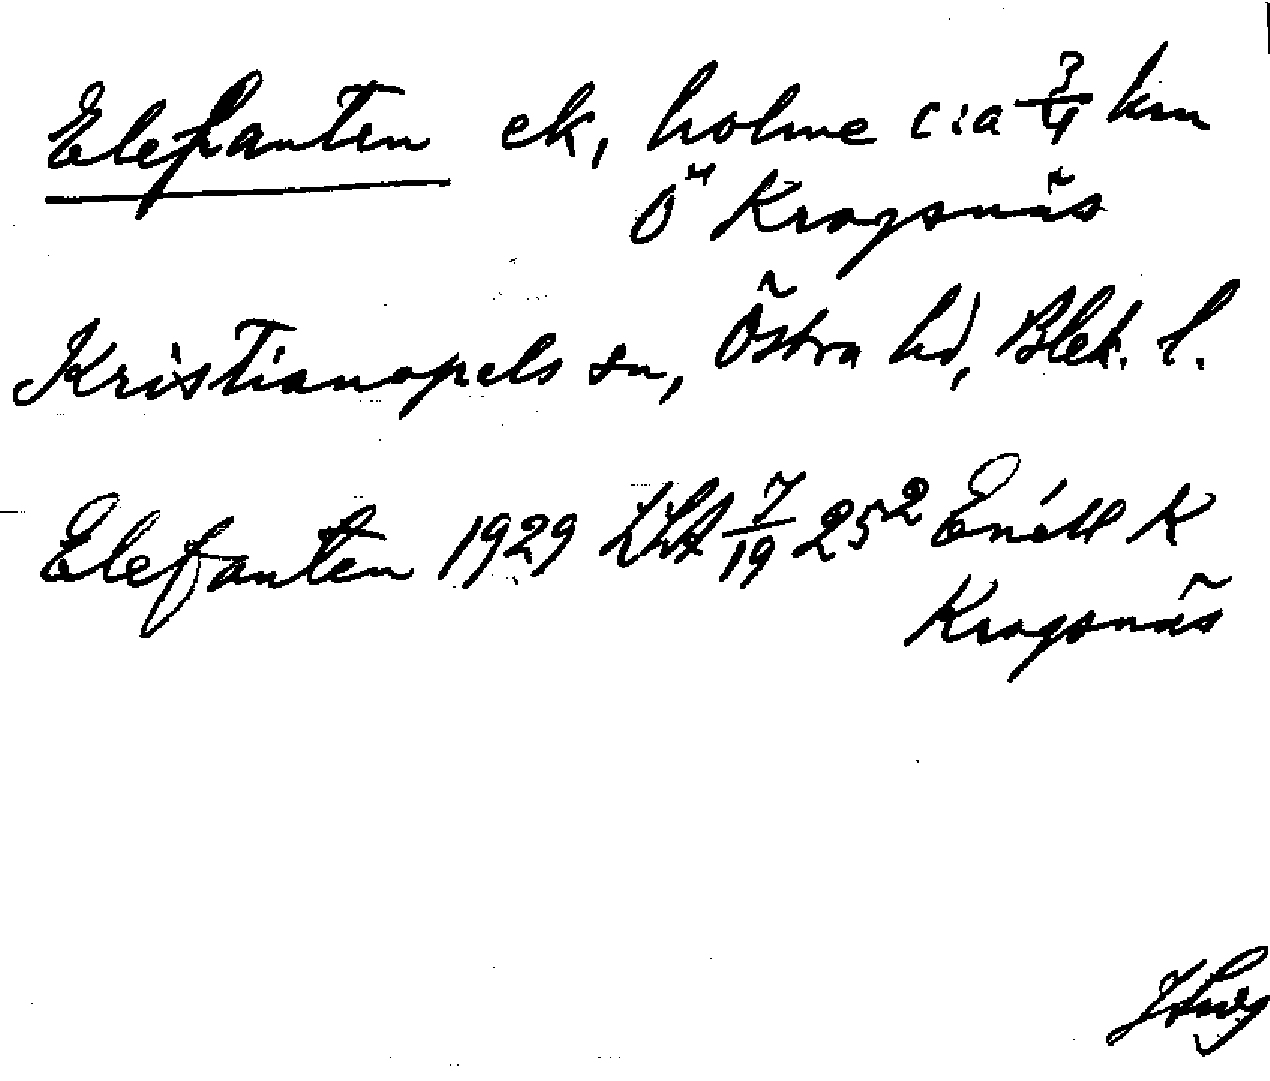 Elefanten ek, holme c:a 3/4 km
Ö Kragsnäs
Kristianopels sn, Östra hd, Blek. l.
Elefanten 1929 LSA 7/19 25² Enéll K
Kragsnäs